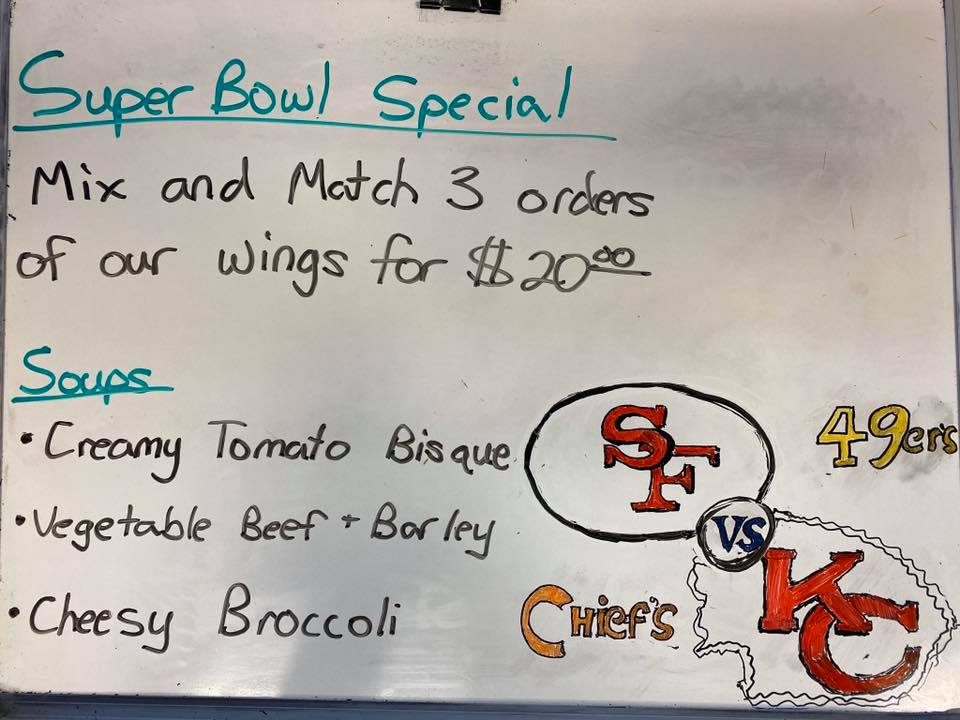 Super Bowl Special
Mix and Match 3 orders
of our wings for $20.00
Soups
• Creamy Tomato Bisque
• Vegetable Beef + Barley
• Cheesy Broccoli
SF
49er's
VS
Chief's
KC